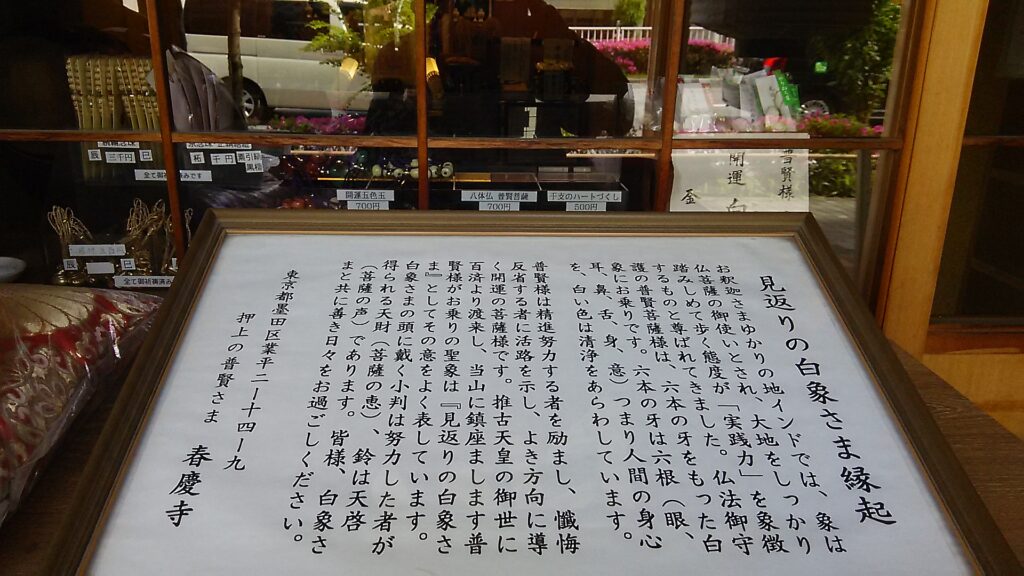 見返りの白象さま縁起
お釈迦さまゆかりの地インドでは、象は
仏菩薩の御使いとされ、大地をしっかり
踏みしめて歩く態度が「実践力」を象徴
するものと尊ばれてきました。仏法御守
護の普賢菩薩様は、六本の牙をもった白
象にお乗りです。六本の牙は六根（眼、
耳、鼻、舌、身、意）つまり人間の身心
を、白い色は清浄をあらわしています。
普賢様は精進努力する者を励まし、懺悔
反省する者に活路を示し、よき方向に導
く開運の菩薩様です。推古天皇の御世に
百済より渡来し、当山に鎮座まします普
賢様がお乗りの聖象は『見返りの白象さ
ま』としてその意をよく表しています。
白象さまの頭に戴く小判は努力した者が
得られる天財（菩薩の恵）、鈴は天啓
（菩薩の声）であります。皆様、白象さ
まと共に善き日々をお過ごしください。
東京都墨田区業平二ー十四ー九
押上の普賢さま　春慶寺
辰 三千円 巳
柘 千円 素引
黒檀
全て御祈祷済みです
開運五色玉
700円
八体仏 普賢菩薩
700円
干支のハートづくし
500円
普賢様
開運 白
全て御祈祷済み